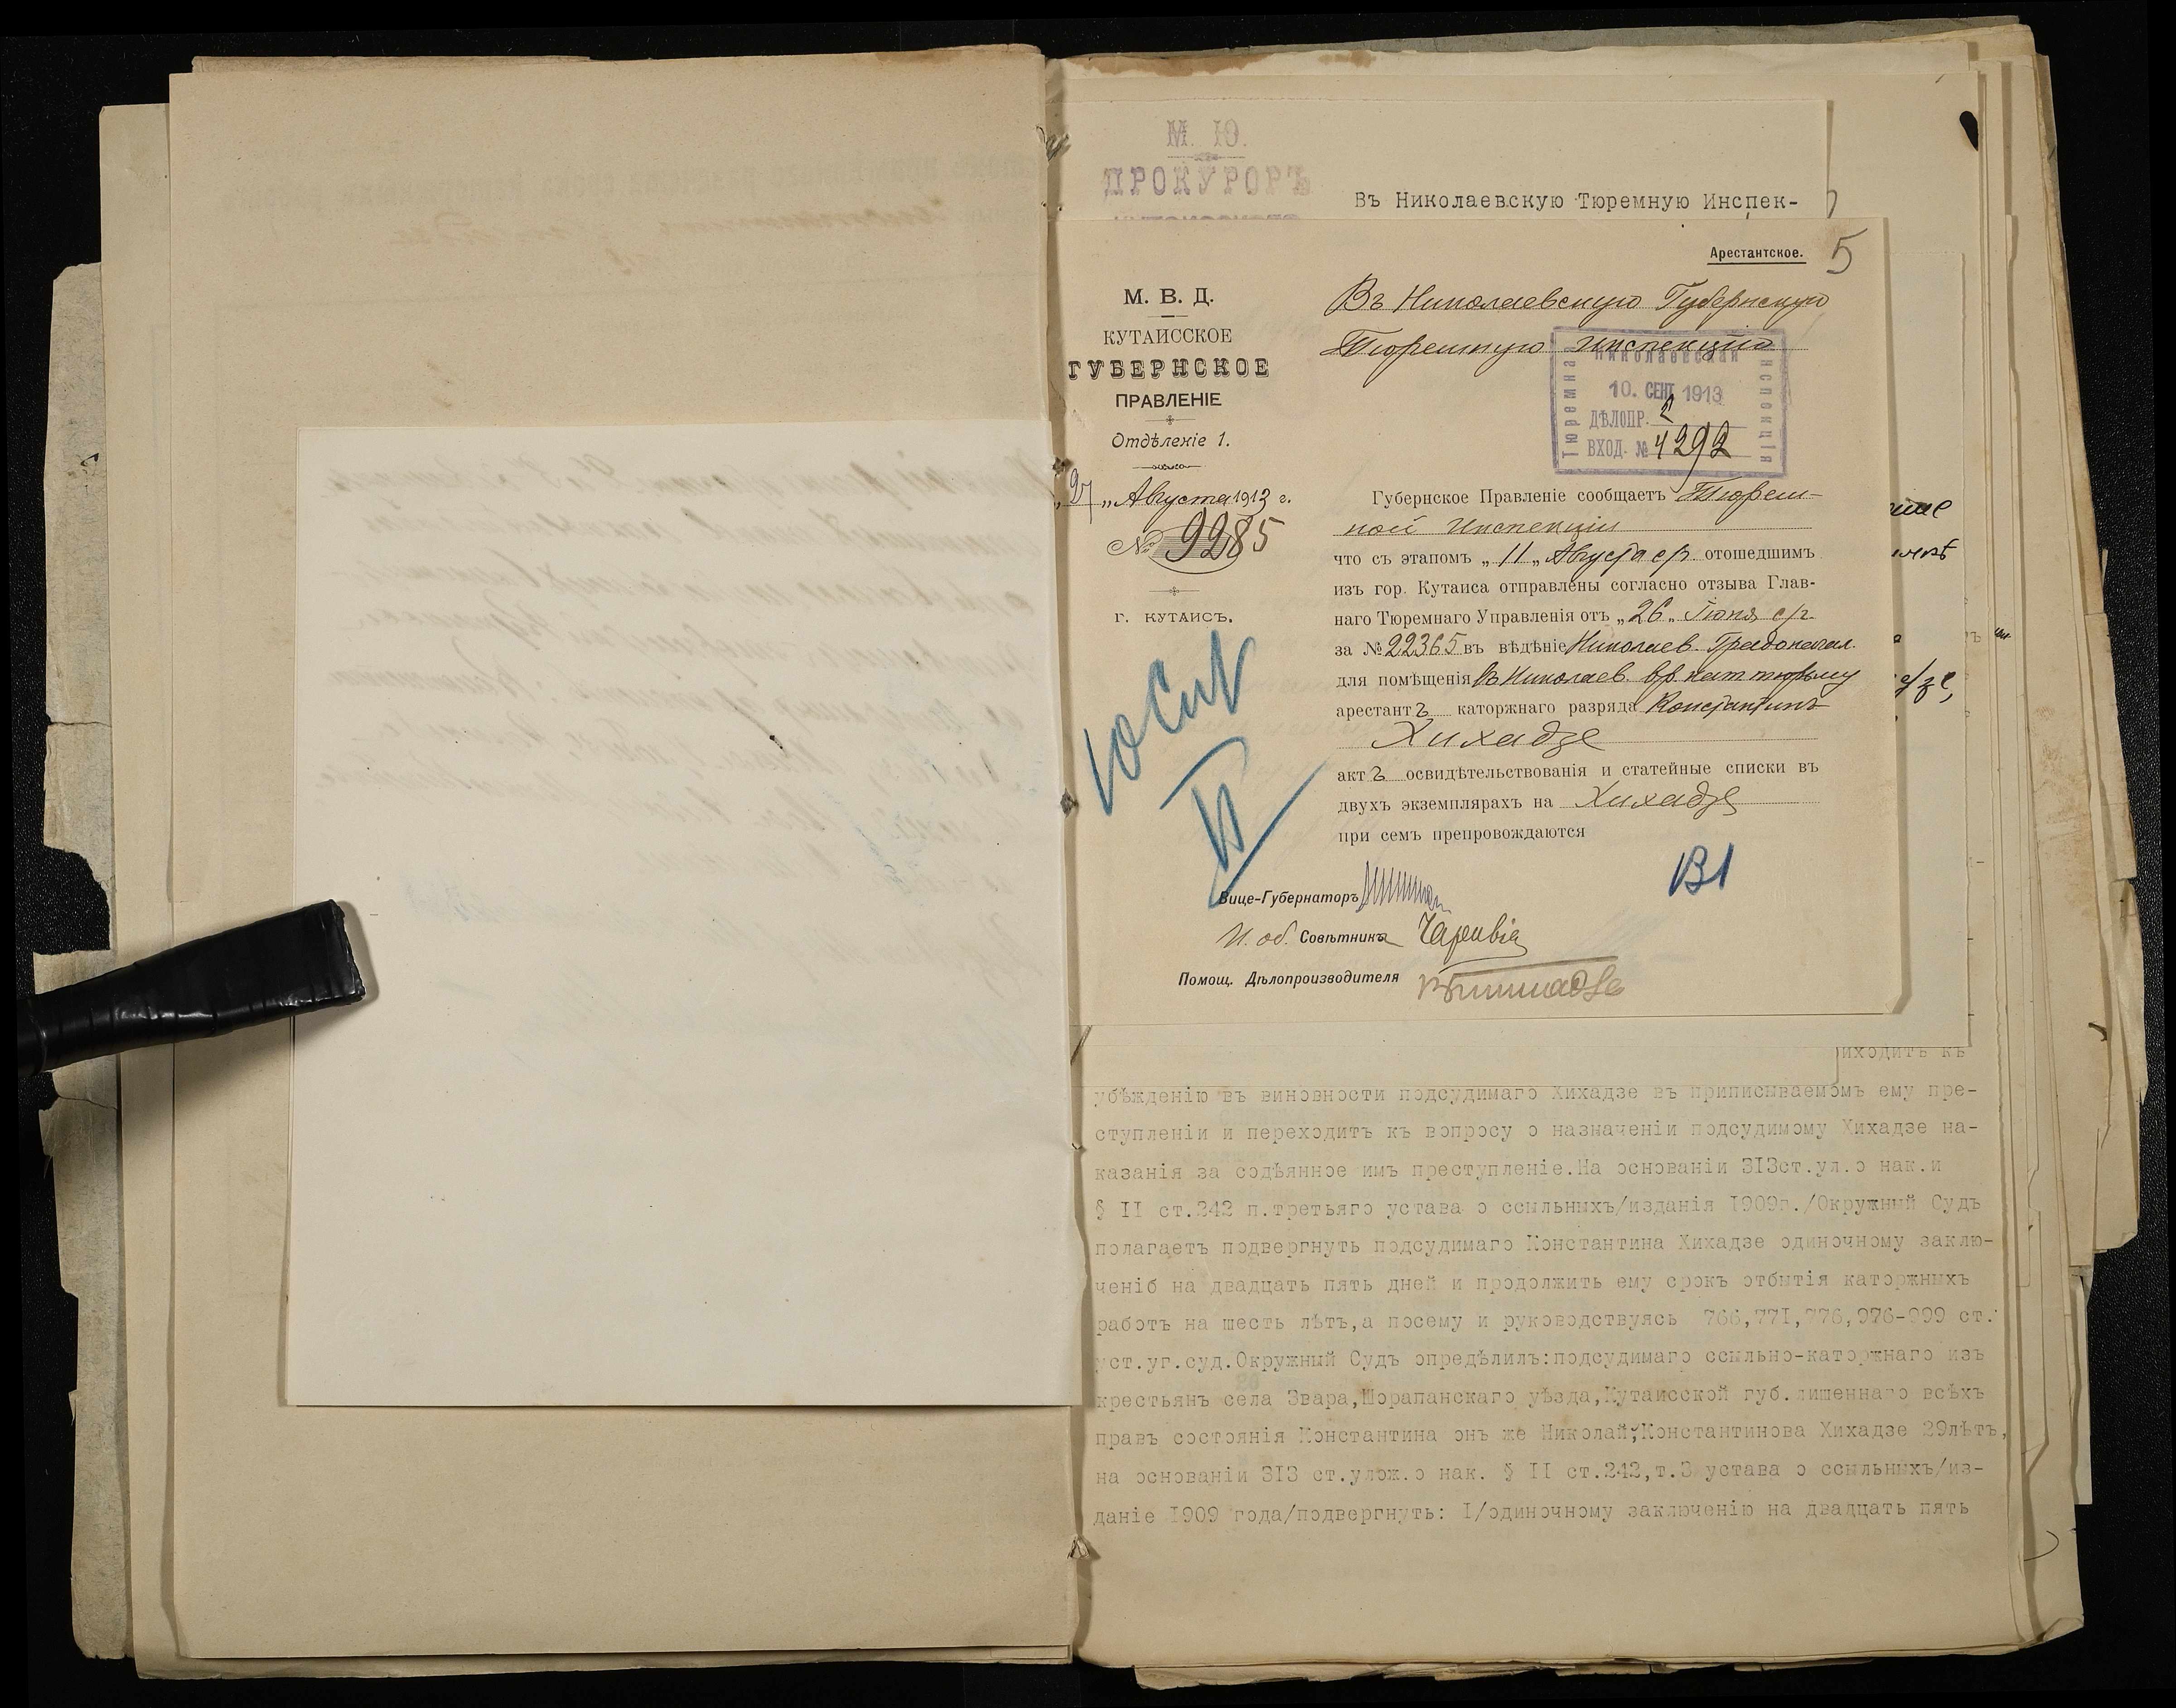 М. Ю.
ПРОКУРОРЪ
Въ Николаевскую Тюремную Инспек-
Арестантское.
5
М. В. Д.
КУТАИССКОЕ
ГУБЕРНСКОЕ
ПРАВЛЕНІЕ
Отдѣленіе 1.
„27„ Августа 1913 г.
№ 9285
г. КУТАИСЪ.
Въ Николаевскую Губернскую
Тюремную Инспекцію
Николаевская
Тюремная
Инспекція
10. СЕНТ 1913
ДѢЛОПР. 2
ВХОД. № 4292
Губернское Правленіе сообщаетъ Тюрем-
ной Инспекціи
что съ этапомъ „11„ Августа с/г. отошедшимъ
изъ гор. Кутаиса отправлены согласно отзыва Глав-
наго Тюремнаго Управленія отъ „26„ Іюня с/г.
за № 22365 въ вѣдѣніе Николаев. Градоначал.
для помѣщенія въ Николаев. вр. кат тюрьму
арестантъ каторжнаго разряда Константинъ
Хихадзе
актъ освидѣтельствованія и статейные списки въ
двухъ экземплярахъ на Хихадзе
при семъ препровождаются
Вице-Губернаторъ
И. об. Совѣтника
Помощ. Дѣлопроизводителя
иходитъ къ
убѣжденію въ виновности подсудимаго Хихадзе въ приписываемомъ ему пре-
ступленіи и переходитъ къ вопросу о назначеніи подсудимому Хихадзе на-
казанія за содѣянное имъ преступленіе.На основаніи 3I3ст.ул.о нак.и
§ II ст.242 п.третьяго устава о ссыльныхъ/изданія I909г./Окружный Судъ
полагаетъ подвергнуть подсудимаго Константина Хихадзе одиночному заклю-
ченіб на двадцать пять дней и продолжить ему срокъ отбытія каторжныхъ
работъ на шесть лѣтъ,а посему и руководствуясь 766,77I,776,976-999 ст.
уст.уг.суд.Окружный Судъ опредѣлилъ:подсудимаго ссыльно-каторжнаго изъ
крестьянъ села Звара,Шорапанскаго уѣзда,Кутаисской губ.лишеннаго всѣхъ
правъ состоянія Константина онъ же Николай,Константинова Хихадзе 29лѣтъ,
на основаніи 3I3 ст.улож.о нак. § II ст.242,т.3 устава о ссыльныхъ/из-
даніе I909 года/подвергнуть: I/одиночному заключенію на двадцать пять